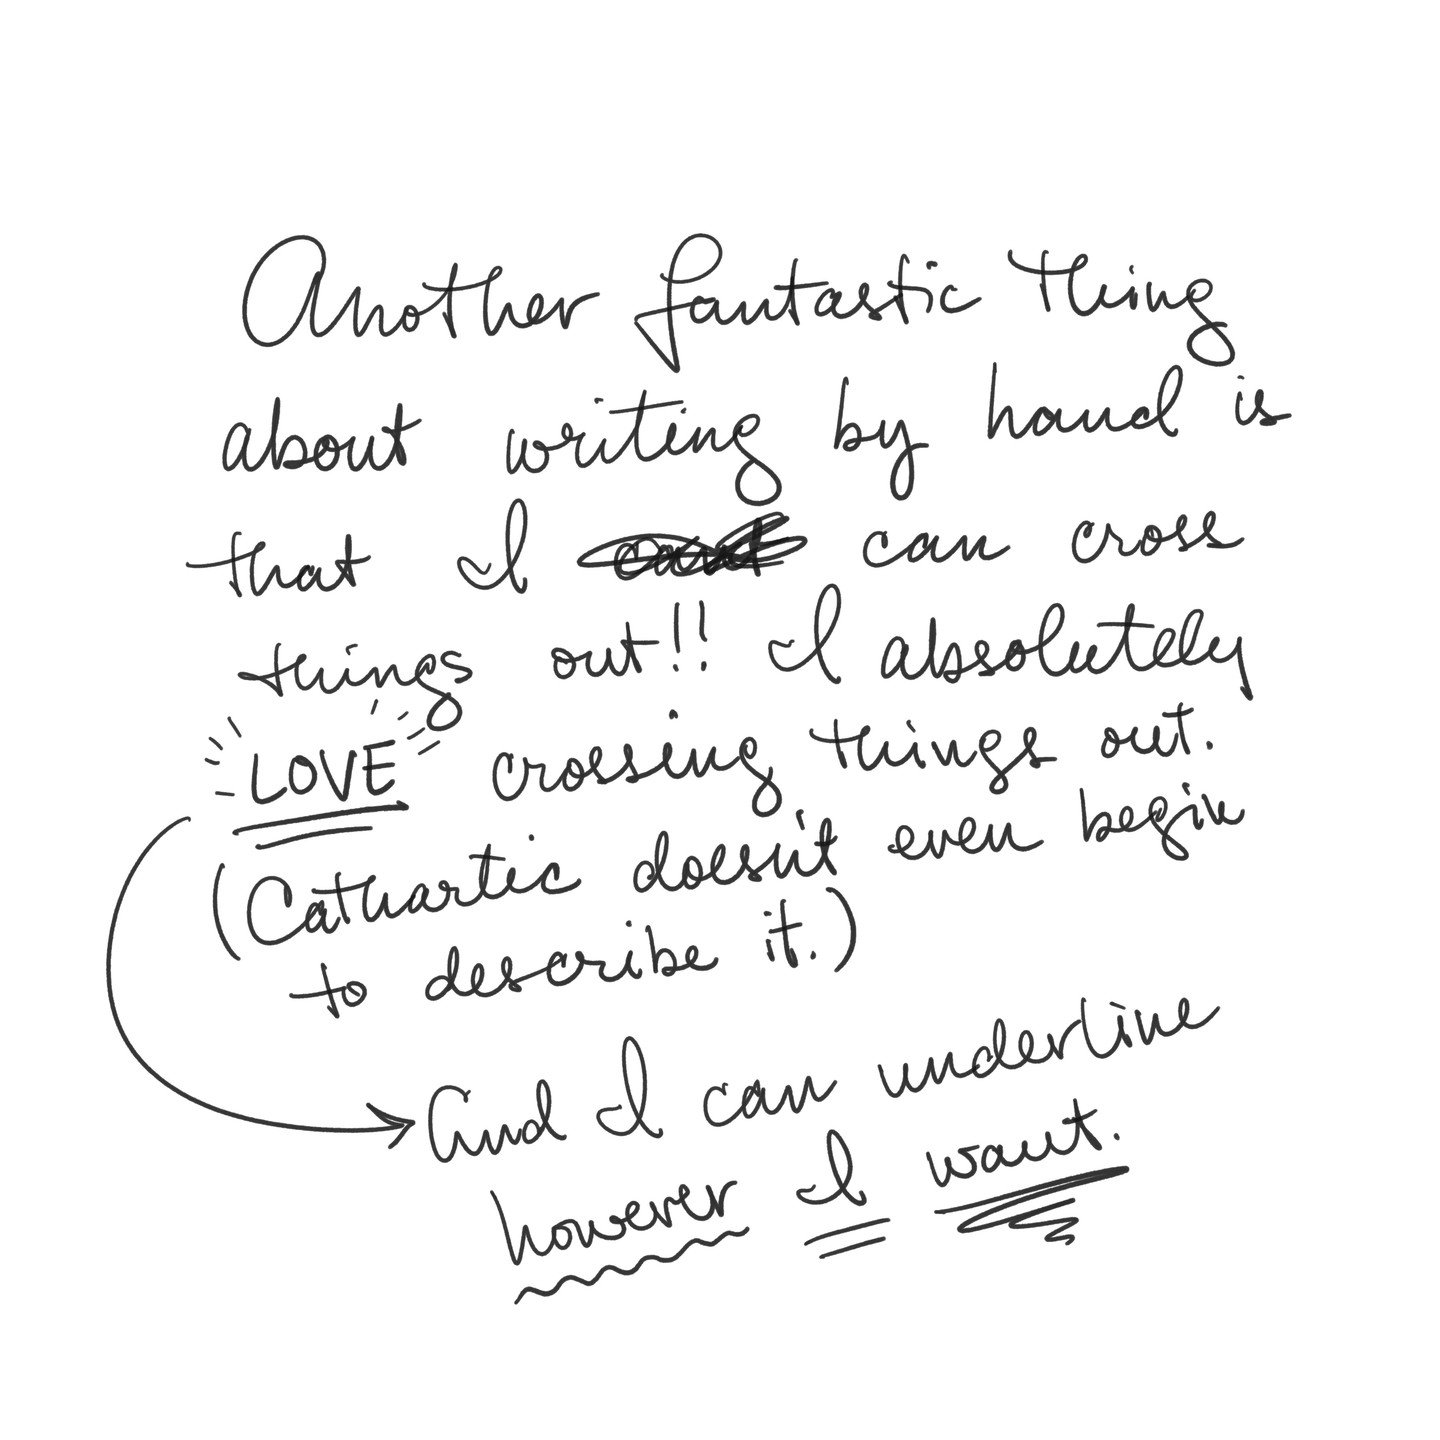 Another fantastic thing
about writing by hand is
that I can cross
things out!! I absolutely
LOVE crossing things out.
(Cathartic doesn't even begin
to describe it.)
And I can underline
however I want.